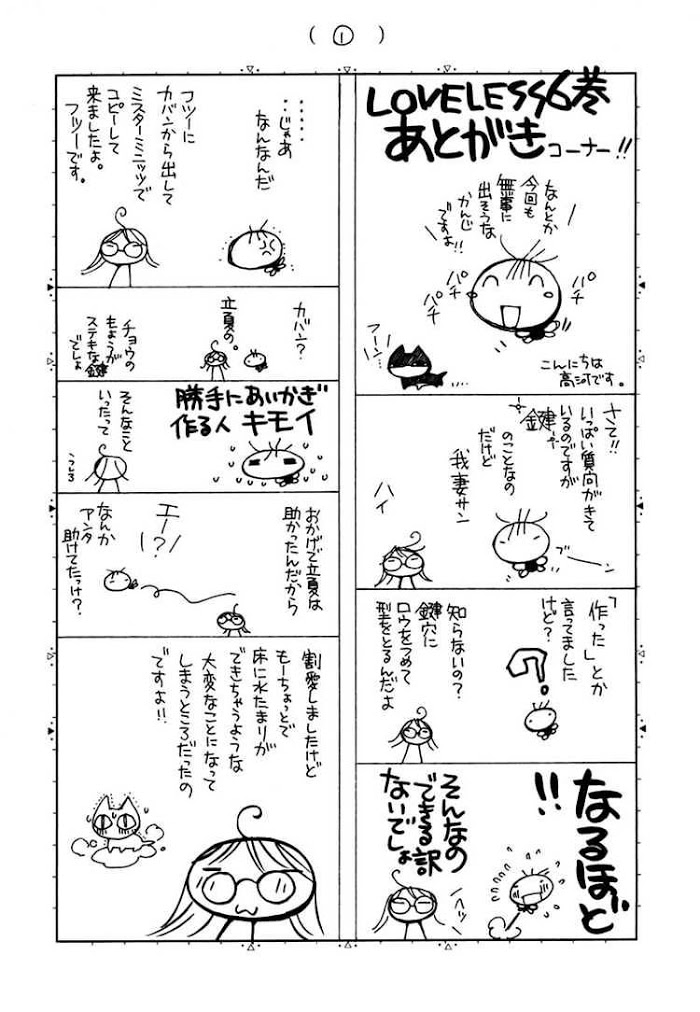 (1)
LOVELESS6巻
あとがきコーナー!!
なんとか
今回も
無事に
出そうな
かんじ
ですよ!!
パチ
パチ
パチ
フーン…
こんにちは
高河です。
さて!!
いっぱい質問がきて
いるのですが
鍵
のことなの
だけど
我妻サン
ハイ
ブーン
「作った」とか
言ってました
けど?
?
知らないの?
鍵穴に
ロウをつめて
型をとるんだよ
なるほど
!!
そんなの
できる訳
ないでしょ
ヘッ
……
…じゃあ
なんなんだ
フツーに
カバンから出して
ミスターミニッツで
コピーして
来ましたよ。
フツーです。
カバン?
立夏の。
チョウの
もようが
ステキな鍵
でしょ
勝手にあいかぎ
作る人 キモイ
そんなこと
いったって
うしろ
おかげで立夏は
助かったんだから
エー!?
なんか
アンタ
助けてたっけ?
割愛しましたけど
もーちょっとで
床に水たまりが
できちゃうような
大変なことになって
しまうところだったの
ですよ!!